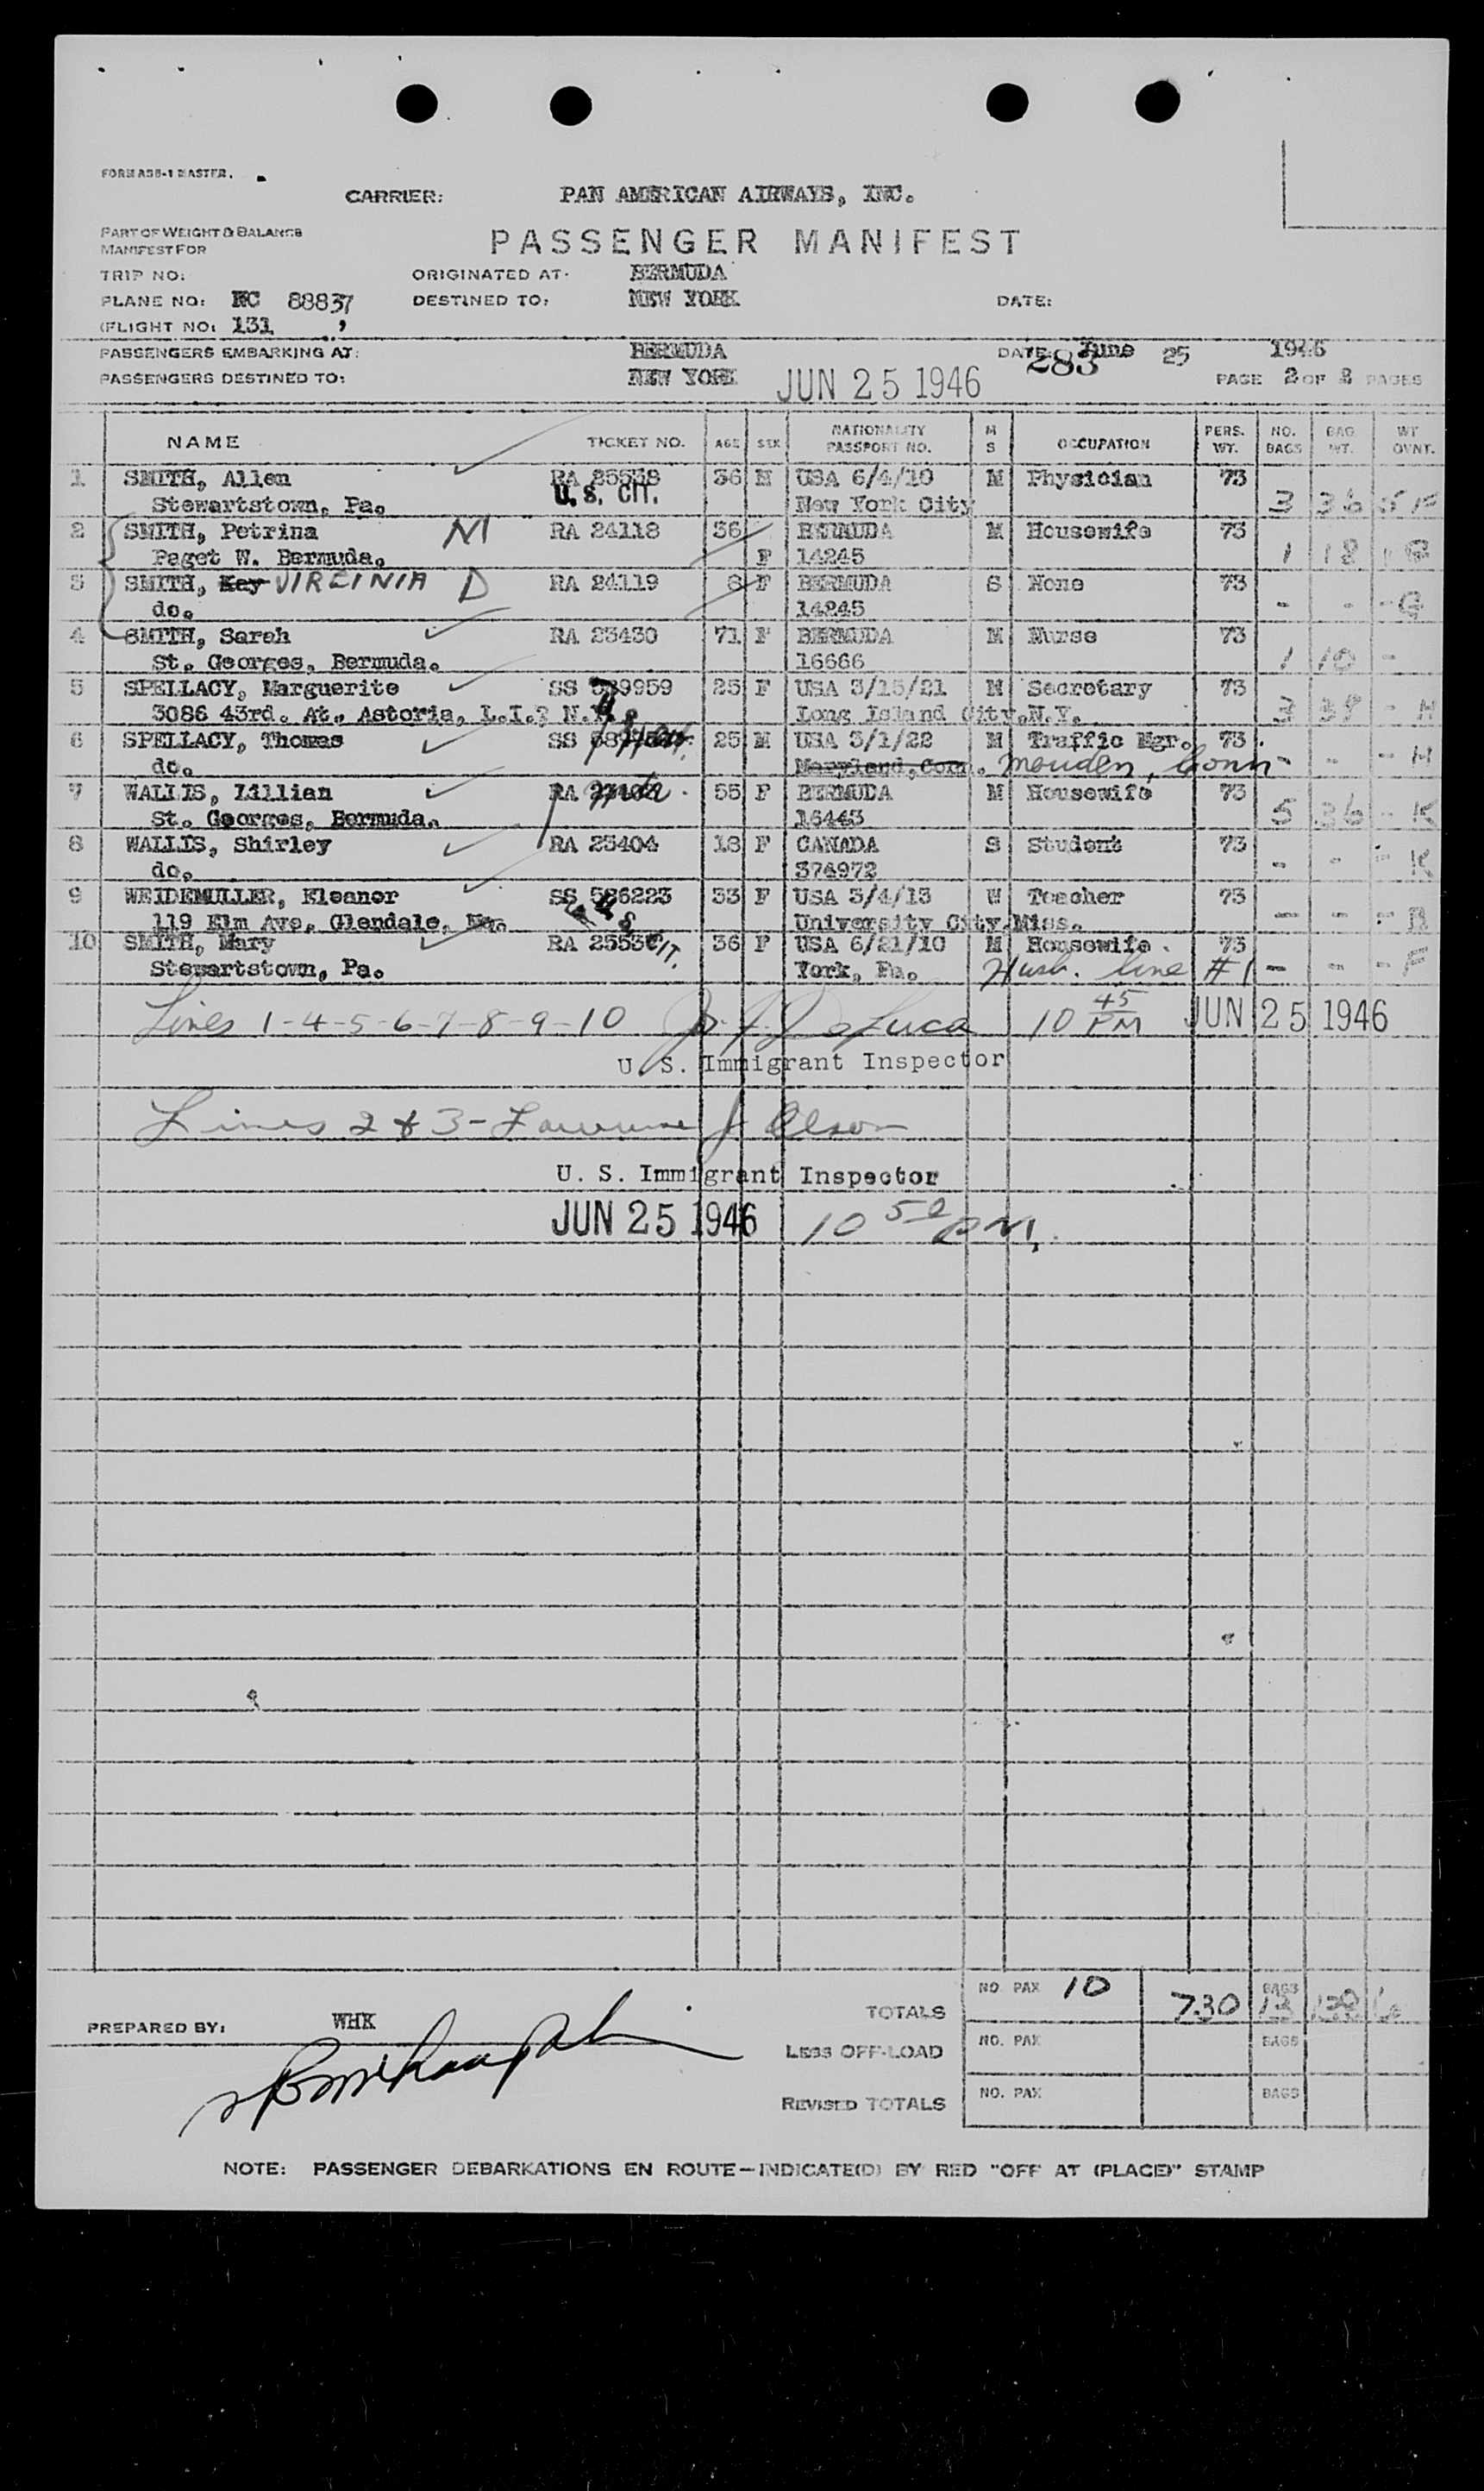 FORM ASB-1 MASTER.
CARRIER: PAN AMERICAN AIRWAYS, INC.
PART OF WEIGHT & BALANCE
MANIFEST FOR
PASSENGER MANIFEST
TRIP NO: ORIGINATED AT: BERMUDA
PLANE NO: NC 88837 DESTINED TO: NEW YORK DATE:
(FLIGHT NO: 131
PASSENGERS EMBARKING AT: BERMUDA DATE: June 25 1946
283
PASSENGERS DESTINED TO: NEW YORK JUN 25 1946 PAGE 2 OF 2 PAGES
NAME TICKET NO. AGE SEX NATIONALITY PASSPORT NO. M S OCCUPATION PERS. WT. NO. BAGS BAG WT. WT OVNT.
1 SMITH, Allen RA 25538 36 M USA 6/4/10 M Physician 73
Stewartstown, Pa. U.S. CIT. New York City 3 36 5 F
2 SMITH, Petrina M RA 24118 36 BERMUDA M Housewife 73
Paget W. Bermuda. F 14245 1 18 1 G
3 SMITH, Kay VIREINIA D RA 24119 8 F BERMUDA S None 73
do. 14245 - - - G
4 SMITH, Sarah RA 23430 71 F BERMUDA M Nurse 73
St. Georges, Bermuda. 16666 1 10 -
5 SPELLACY, Marguerite SS 589959 25 F USA 3/15/21 M Secretary 73
3086 43rd. At., Astoria, L.I., N.Y. Long Island City, N.Y. 3 38 - H
6 SPELLACY, Thomas SS 25 M USA 3/1/22 M Traffic Mgr. 73
do. Maryland, Conn. Meriden, Conn - - - H
7 WALLIS, Lillian RA 55 F BERMUDA M Housewife 73
St. Georges, Bermuda. 16443 5 36 - K
8 WALLIS, Shirley RA 23404 18 F CANADA S Student 73
do. 374972 - - - K
9 WEIDEMULLER, Eleanor SS 586223 33 F USA 3/4/13 W Teacher 73
119 Elm Ave. Glendale, Mo. U.S. CIT. University City, Miss. - - - B
10 SMITH, Mary RA 36 F USA 6/21/10 M Housewife. 73
Stewartstown, Pa. York, Pa. Husb. line #1 - - - F
Lines 1-4-5-6-7-8-9-10 DeLuca 10 45 PM JUN 25 1946
U. S. Immigrant Inspector
Lines 2 & 3 - Lawrence J Olson
U. S. Immigrant Inspector
JUN 25 1946 10 50 PM.
TOTALS NO. PAX 10 730 BAGS 13 138 6
PREPARED BY: WHK
LESS OFF-LOAD NO. PAX BAGS
REVISED TOTALS NO. PAX BAGS
NOTE: PASSENGER DEBARKATIONS EN ROUTE—INDICATE(D) BY RED "OFF AT (PLACE)" STAMP